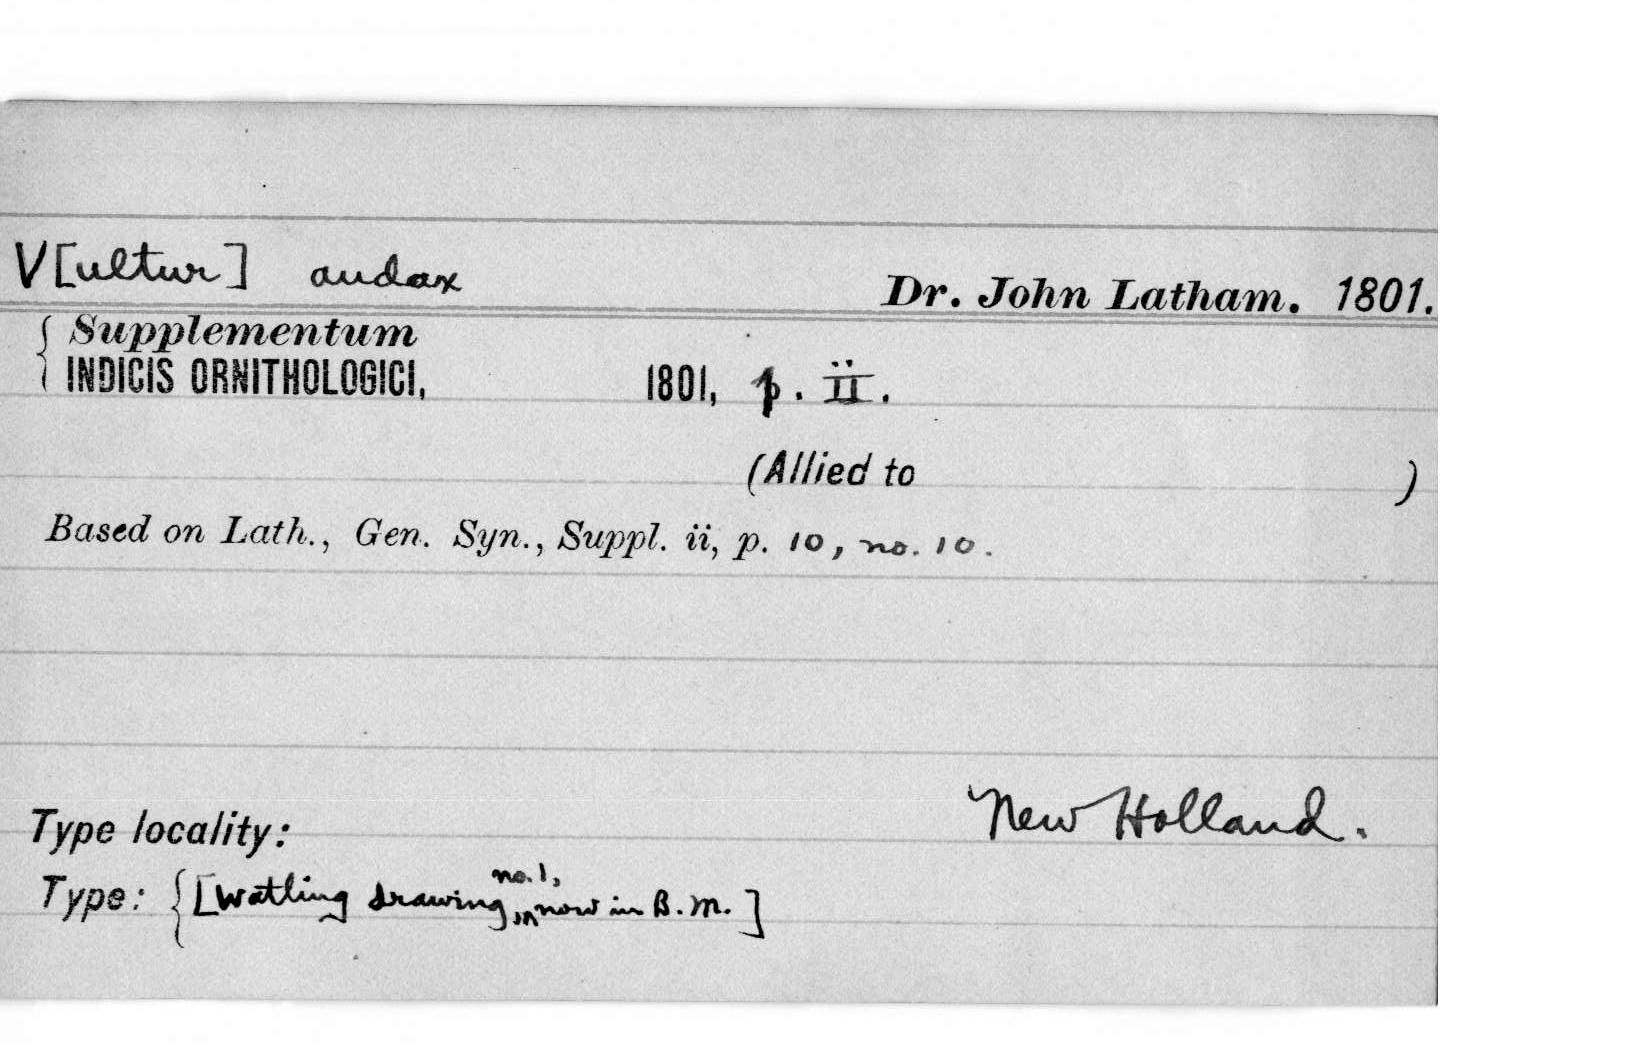 V[ultur] audax Dr. John Latham. 1801.
{ Supplementum
INDICIS ORNITHOLOGICI, 1801, p. ii.
(Allied to )
Based on Lath., Gen. Syn., Suppl. ii, p. 10, no. 10.
New Holland.
Type locality:
no. 1,
Type: { [Watling drawing, now in B.M.]